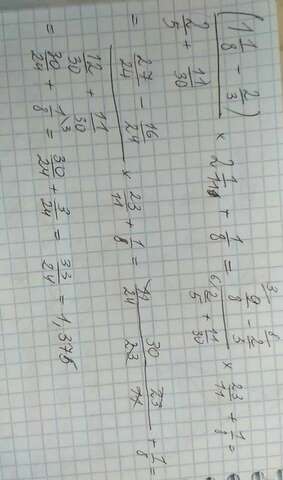 (1 1/8 - 2/3) / (2/5 + 11/30) × 2 1/11 + 1/8 = (9/8 - 2/3) / (2/5 + 11/30) × 23/11 + 1/8 =
= (27/24 - 16/24) / (12/30 + 11/30) × 23/11 + 1/8 = 11/24 30/23 23/11 + 1/8 =
= 30/24 + 1/8 = 30/24 + 3/24 = 33/24 = 1,375